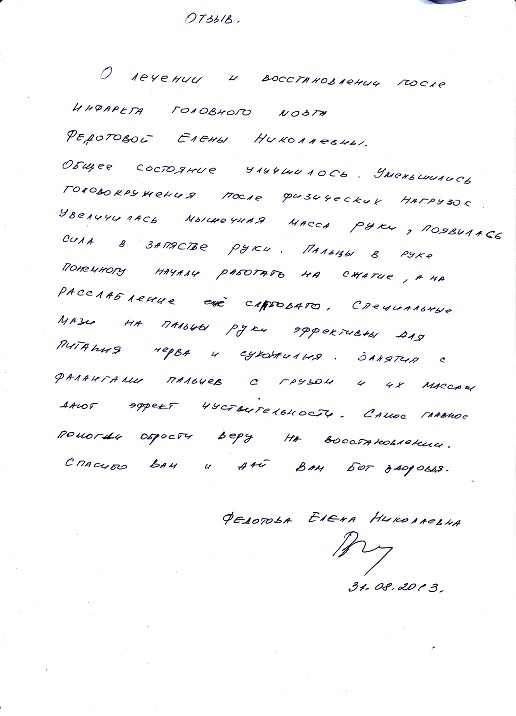 ОТЗЫВ.
О лечении и восстановлении после
инфаркта головного мозга
Федотовой Елены Николаевны.
Общее состояние улучшилось. Уменьшились
головокружения после физических нагрузок.
Увеличилась мышечная масса руки, появилась
сила в запястье руки. Пальцы в руке
понемногу начали работать на сжатие, а на
расслабление ещё слабовато. Специальные
мази на пальцы руки эффективны для
питания нерва и сухожилия. Занятия с
фалангами пальцев с грузом и их массаж
дают эффект чуствительности. Самое главное
помогли обрости веру на восстановлении.
Спасибо Вам и дай Вам Бог здоровья.
Федотова Елена Николаевна
31.08.2013.